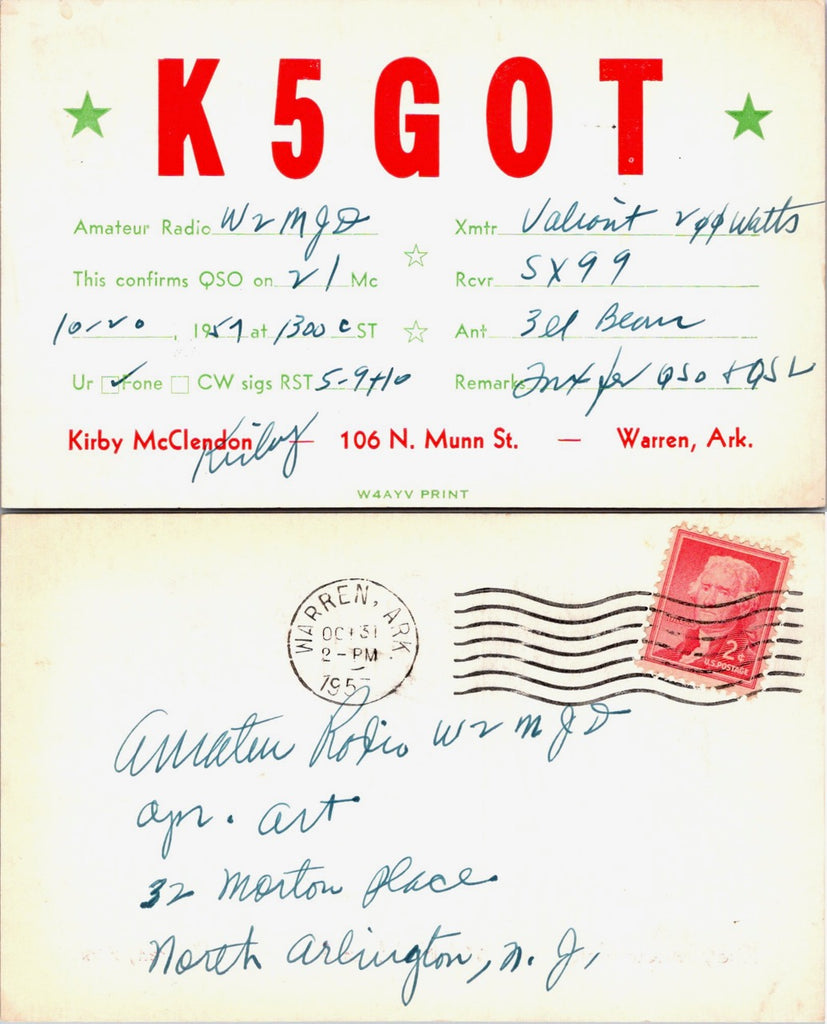 K5GOT
Amateur Radio W2MJD Xmtr Valiant 200 Watts
This confirms QSO on 21 Mc Rcvr SX99
10-20, 1957 at 1300 CST Ant 3 el Beam
Ur ✓ Fone □ CW sigs RST 5-9+10 Remarks Tnx fer QSO + QSL
Kirby McClendon — 106 N. Munn St. — Warren, Ark.
Kirby
W4AYV PRINT
WARREN, ARK
OCT 31
2 - PM
1957
2¢
U.S. POSTAGE
Amateur Radio W2MJD
Opr. Art
32 Morton Place
North Arlington, N. J.